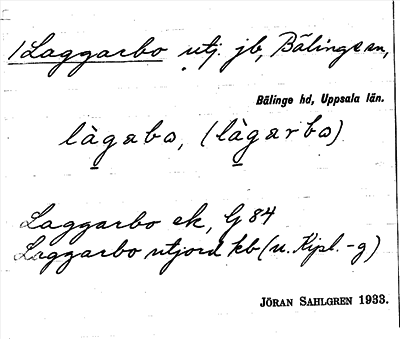 1 Laggarbo utj. jb, Bälinge sn,
Bälinge hd, Uppsala län.
làgabo, (làgarbo)
Laggarbo ek, Gj 84
Laggarbo utjord kb (u. Kipl. -g)
JÖRAN SAHLGREN 1933.